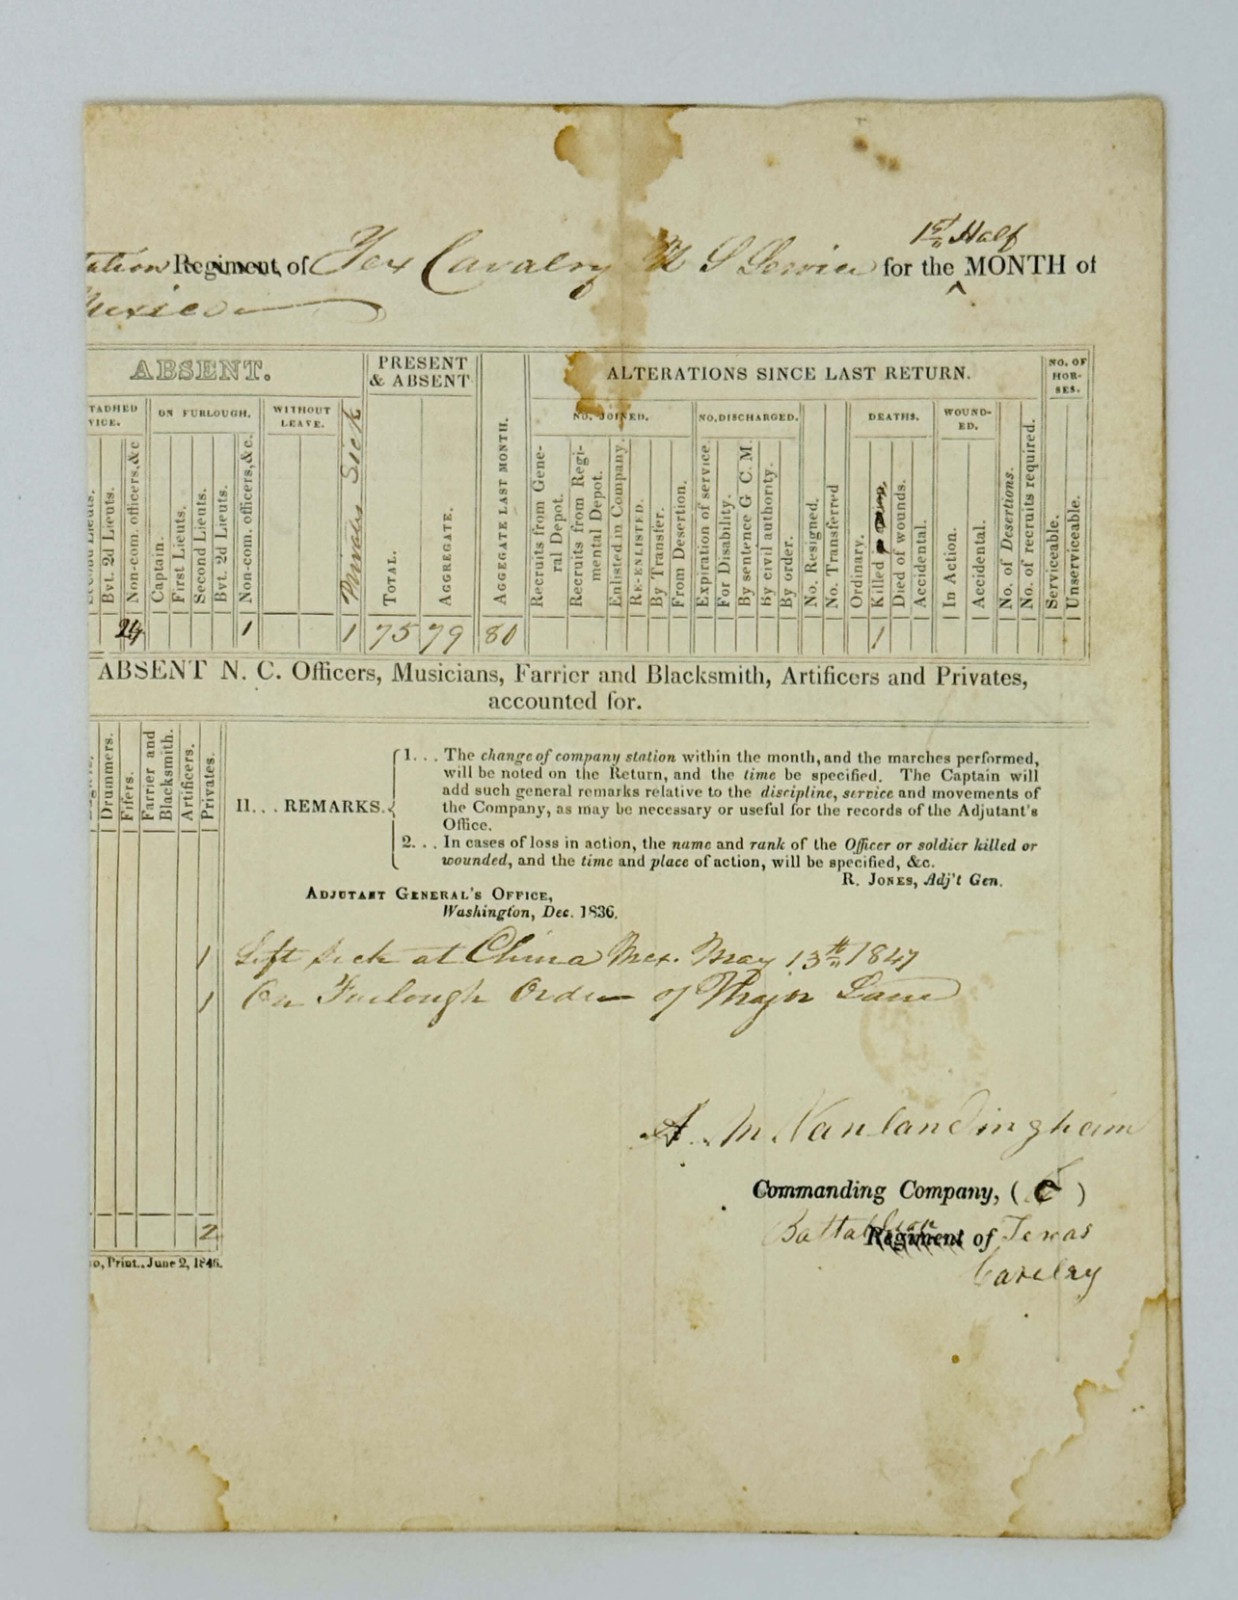 1st Half
Regiment, of Tex Cavalry U S Service for the ^ MONTH of
Mexico
ABSENT.
PRESENT & ABSENT
ALTERATIONS SINCE LAST RETURN.
NO. OF HORSES.
TACHED VICE.
ON FURLOUGH.
WITHOUT LEAVE.
NO. JOINED.
NO. DISCHARGED.
DEATHS.
WOUNDED.
Bvt. 2d Lieuts.
Non-com. officers, &c
Captain.
First Lieuts.
Second Lieuts.
Bvt. 2d Lieuts.
Non-com. officers, &c.
Privates Sick
TOTAL.
AGGREGATE.
AGGEGATE LAST MONTH.
Recruits from General Depot.
Recruits from Regimental Depot.
Enlisted in Company.
RE-ENLISTED.
By Transfer.
From Desertion.
Expiration of service.
For Disability.
By sentence G C. M.
By civil authority.
By order.
No. Resigned.
No. Transferred
Ordinary.
Killed
Died of wounds.
Accidental.
In Action.
Accidental.
No. of Desertions.
No. of recruits required.
Serviceable.
Unserviceable.
24 1 1 75 79 80 1
ABSENT N. C. Officers, Musicians, Farrier and Blacksmith, Artificers and Privates,
accounted for.
Drummers.
Fifers.
Farrier and Blacksmith.
Artificers.
Privates.
II... REMARKS.
1... The change of company station within the month, and the marches performed,
will be noted on the Return, and the time be specified. The Captain will
add such general remarks relative to the discipline, service and movements of
the Company, as may be necessary or useful for the records of the Adjutant's
Office.
2... In cases of loss in action, the name and rank of the Officer or soldier killed or
wounded, and the time and place of action, will be specified, &c.
R. JONES, Adj't Gen.
ADJUTANT GENERAL'S OFFICE,
Washington, Dec. 1836.
1 Left sick at China Mex. May 13th 1847
1 On Furlough Order of Major Lane
A. M. Vanlandingham
Commanding Company, ( C )
Battalion Regiment of Texas
Cavelry
2
Print., June 2, 1846.